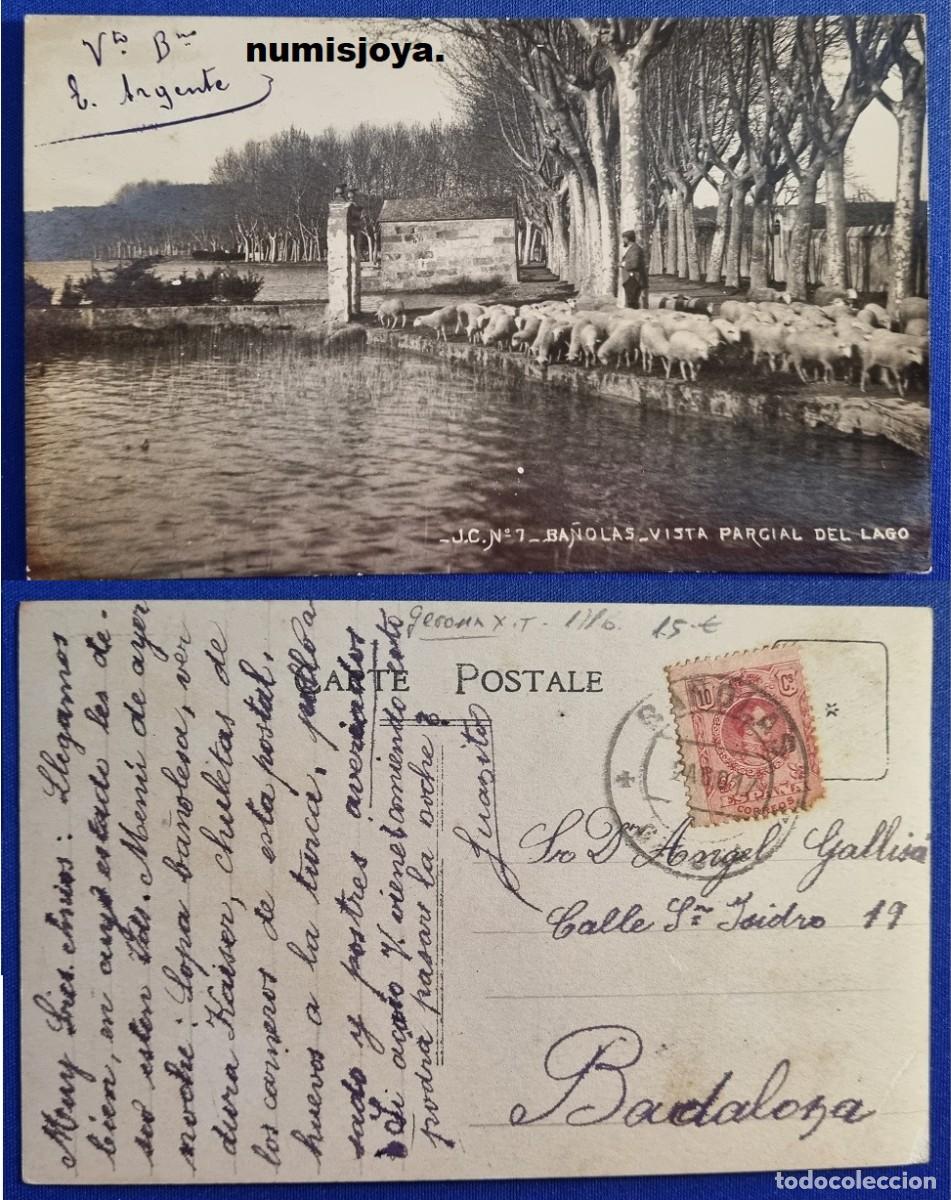 Vto Bno
E. Argente
numisjoya.
J.C. Nº 7 - BAÑOLAS - VISTA PARCIAL DEL LAGO
Gerona X.T. 15 €
CARTE POSTALE
BAÑOLAS
10 Cs
CORREOS
Sr Dn Angel Gallisá
Calle Sn Isidro 19
Badalona
Muy Sres. mios: Llegamos
bien, en cuyo estado les de-
seo esten Vds. Menú de ayer
noche: Sopa bañolesa, ver
dura Kaiser, chuletas de
los carneros de esta postal,
huevos a la turca, pollo a
sado y postres averiados
Si acaso V. viene comiendo esto
podra pasar la noche?
Juanito
todocoleccion